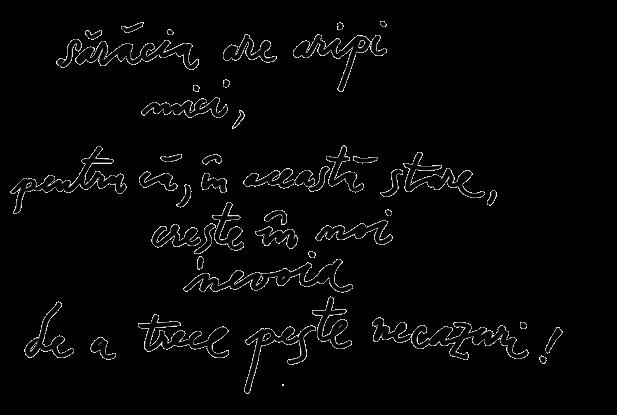 sărăcia are aripi
mici,
pentru că, în această stare,
crește în noi
nevoia
de a trece peste necazuri!